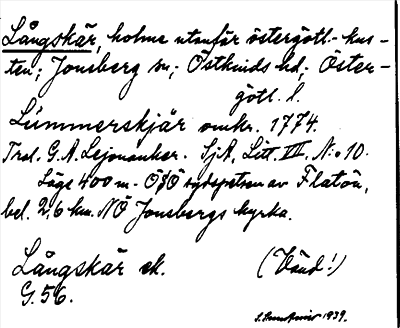 Långskär, holme utanför östergötl. kus-
ten; Jonsberg sn; Östkinds hd; Öster-
götl. l.
Lümmerskjär omkr. 1774.
Trol. G. A. Lejonanker. SjA, Litt. III. N:o 10.
Läge 400 m. ÖSÖ sydspetsen av Flatön,
bel. 2,6 km. NÖ Jonsbergs kyrka.
Långskär ek. (Vänd!)
G. 56.
1939.